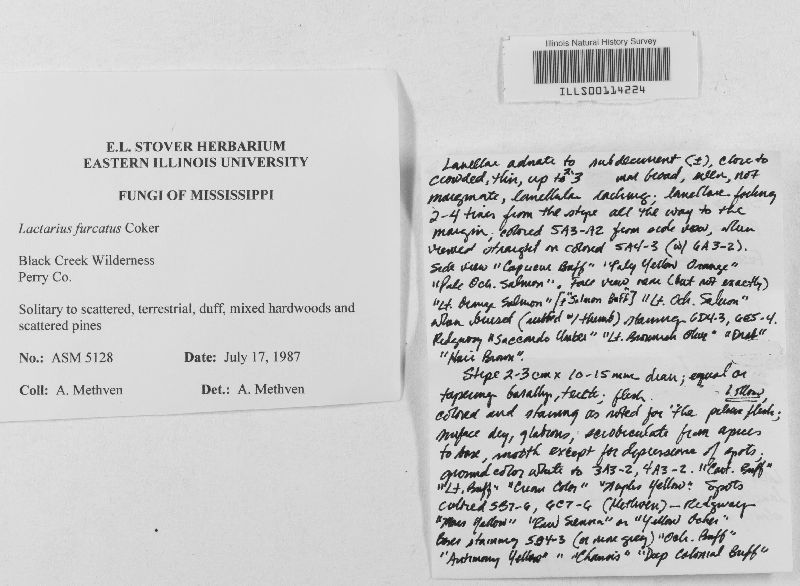 Illinois Natural History Survey
ILLS00114224
E.L. STOVER HERBARIUM
EASTERN ILLINOIS UNIVERSITY
FUNGI OF MISSISSIPPI
Lactarius furcatus Coker
Black Creek Wilderness
Perry Co.
Solitary to scattered, terrestrial, duff, mixed hardwoods and
scattered pines
No.: ASM 5128 Date: July 17, 1987
Coll: A. Methven Det.: A. Methven
Lamellae adnate to subdecurrent (±), close to
crowded, thin, up to 3 mm broad, even, not
marginate, lamellulae lacking; lamellae forking
2-4 times from the stipe all the way to the
margin, colored 5A3-A2 from side view, when
viewed straight on colored 5A4-3 (w/ 6A3-2).
Side view "Capucine Buff" "Pale Yellow Orange"
"Pale Och. Salmon". Face view near (but not exactly)
"Lt. Orange Salmon" [± "Salmon Buff"] "Lt. Och. Salmon"
when bruised (rubbed w/ thumb) staining 6D4-3, 6E5-4.
Ridgway "Saccardo Umber" "Lt. Brownish Olive" "Drab"
"Hair Brown".
Stipe 2-3 cm x 10-15 mm diam; equal or
tapering basally, terete; flesh hollow,
colored and staining as noted for the pileus flesh;
surface dry, glabrous, scrobiculate from apices
to base, smooth except for depressions of spots;
ground color white to 3A3-2, 4A3-2. "Cart. Buff"
"Lt. Buff" "Cream Color" "Naples Yellow". Spots
colored 5B7-6, 6C7-6 (Methven) - Ridgway
"Mars Yellow" "Raw Sienna" or "Yellow Ocher"
Base staining 5B4-3 (or more grey) "Och. Buff"
"Antimony Yellow" "Chamois" "Deep Colonial Buff"